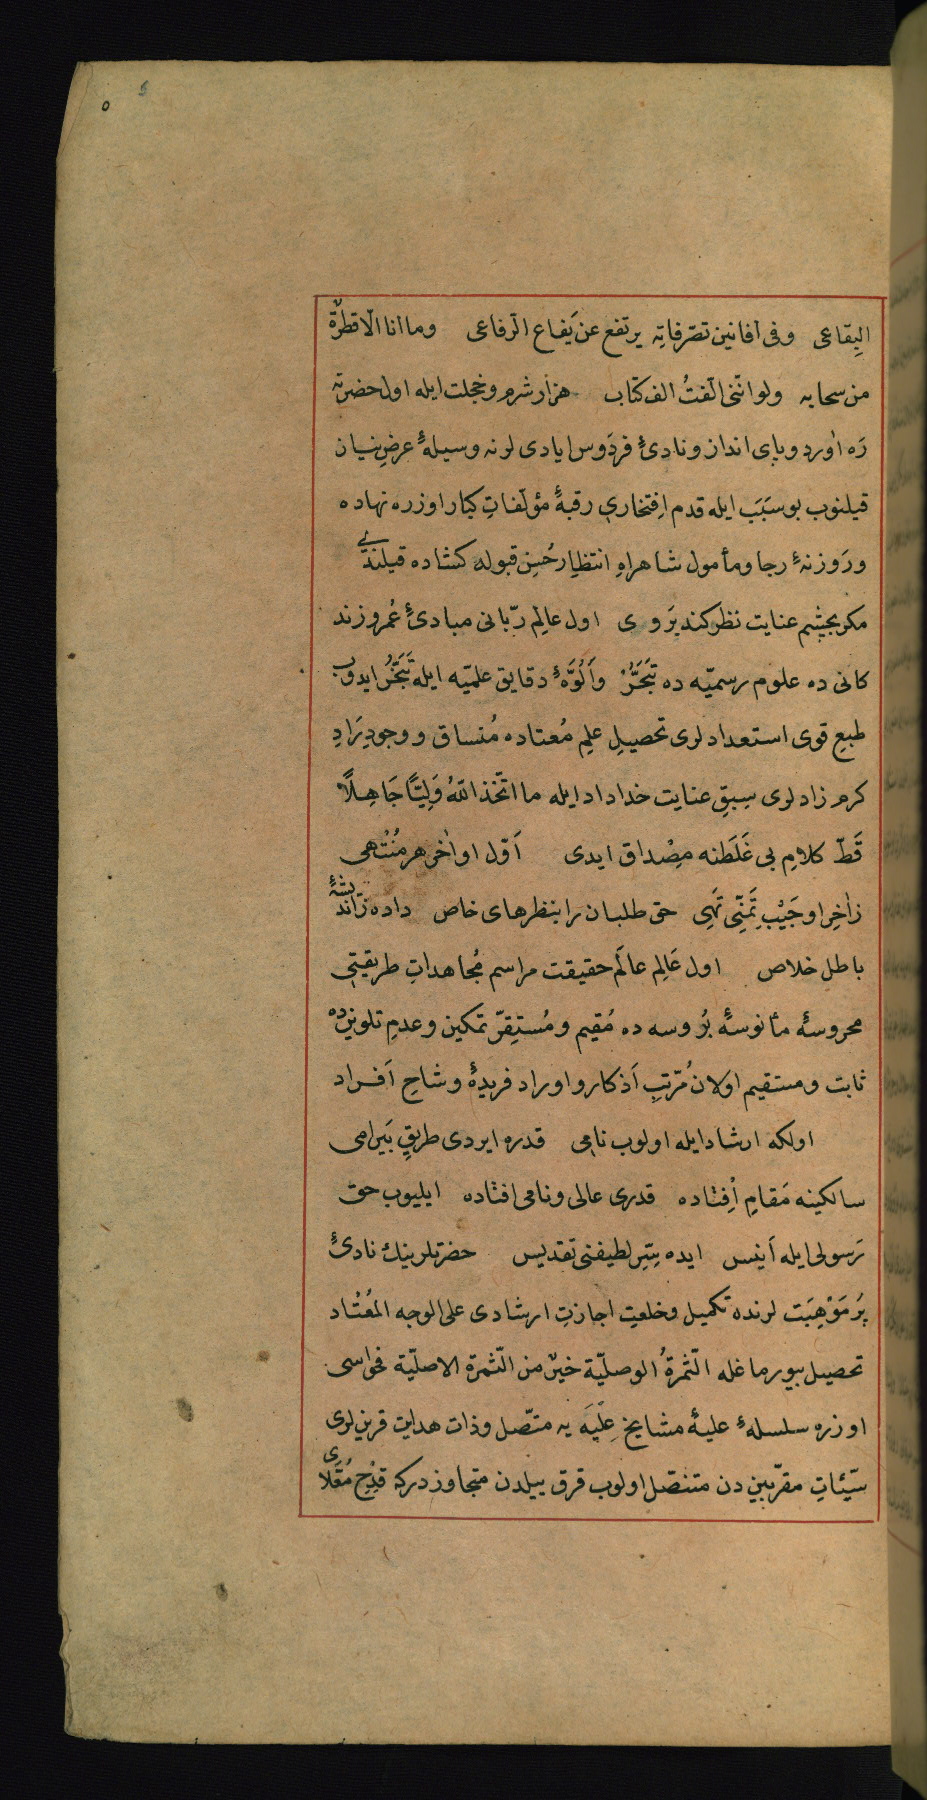 ٥
البقاعی وفی افانین تصرفاته یرتفع عن یفاع الرفاعی وما انا الا قطرة
من سحابه ولو اننی الفت الف کتاب هزار شرم و خجلت ایله اول حضرته
ره اورد و پای انداز و نادیٔ فردوس ایادی لرنه وسیلهٔ عرض نیان
قیلنوب بو سبب ایله قدم افتخاری رقبهٔ مؤلفات کبار اوزره نهاده
و روزنهٔ رجا و مأمول شاهراه انتظار حسن قبوله کشاده قیلندی
مکر بچشم عنایت نظر کند بروی اول عالم ربانی مبادیٔ عمر و زند
کانی ده علوم رسمیه ده تبحر و الوهٔ دقایق علمیه ایله تبخر ایدوب
طبع قوی استعدادلری تحصیل علم معتاده منساق و وجود براد
کرم زادلری سبق عنایت خداداد ایله ما اتخذ الله ولیا جاهلا
قط کلام بی غلطنه مصداق ایدی اول او اخر هر منتهی
ز اخر او جیب تمنی تهی حق طلبان را بنظرهای خاص داده ز اندیشهٔ
باطل خلاص اول عالم عالم حقیقت مراسم مجاهدات طریقتی
محروسهٔ مأنوسهٔ بروسه ده مقیم و مستقر تمکین و عدم تلوین ده
ثابت و مستقیم اولان مرتب اذکار و اوراد فریدهٔ وشاح افراد
اولکه ارشاد ایله اولوب نامی قدره ایردی طریق بیرامی
سالکینه مقام افتاده قدری عالی و نامی افتاده ایلیوب حق
رسولی ایله انیس ایده سر لطیفنی تقدیس حضرتلرینك نادیٔ
پر موهبت لرنده تکمیل و خلعت اجازت ارشادی علی الوجه المعتاد
تحصیل بیورماغله الثمرة الوصلیة خیر من الثمرة الاصلیة فحواسی
اوزره سلسلهٔ علیهٔ مشایخ علیه یه متصل و ذات هدایت قرین لری
سیئات مقربین دن متنصل اولوب قرق ییلدن متجاوزدرکه قدح معلای